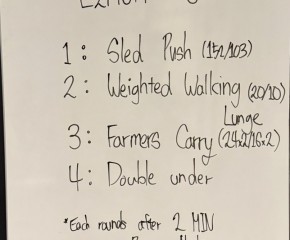 1: Sled Push (152/103)
2: Weighted Walking (20/10)
Lunge
3: Farmers Carry (24x2/16x2)
4: Double under
*Each rounds after 2 MIN